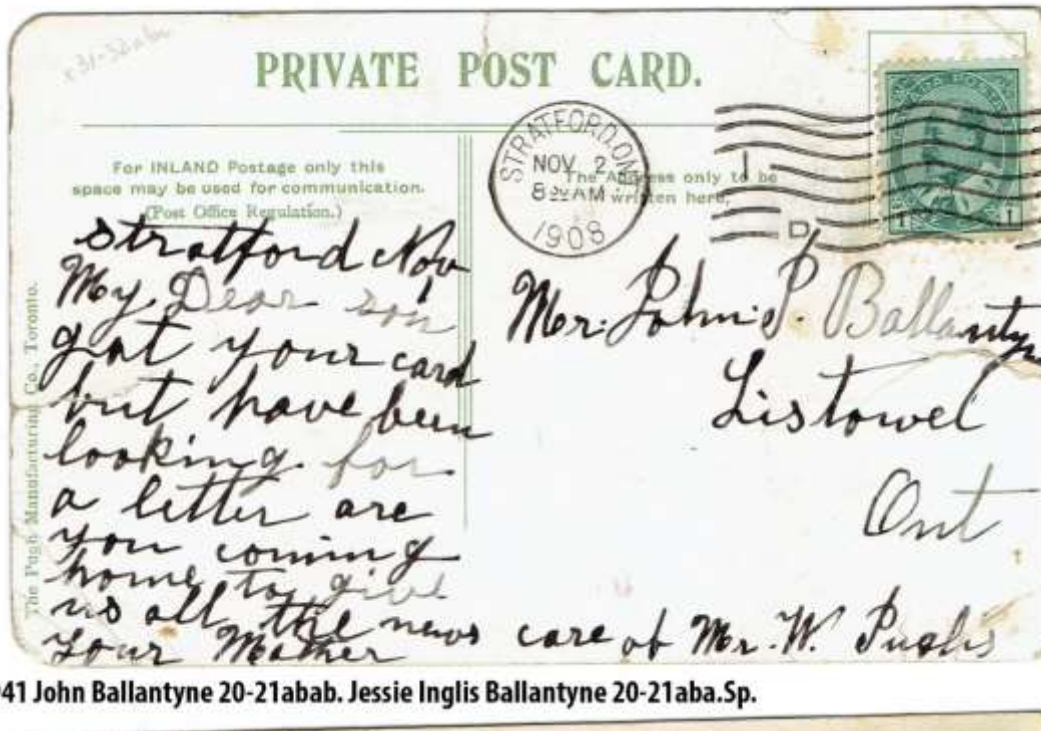 PRIVATE POST CARD.
For INLAND Postage only this
space may be used for communication.
(Post Office Regulation.)
The Address only to be
written here.
STRATFORD, ONT
NOV 2
8 AM
1908
D
1 1
The Pugh Manufacturing Co., Toronto.
Stratford Nov
My Dear son
gat your card
but have been
looking for
a letter are
you coming
home to give
us all the news
your Mother
Mr. John. P. Ballantyne
Listowel
Ont
care of Mr. W.
41 John Ballantyne 20-21abab. Jessie Inglis Ballantyne 20-21aba.Sp.